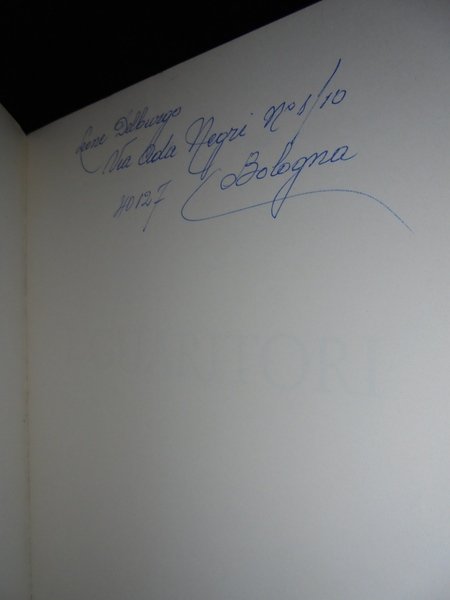 Leone Dalburgo
Via Ada Negri N° 1/10
40127 Bologna